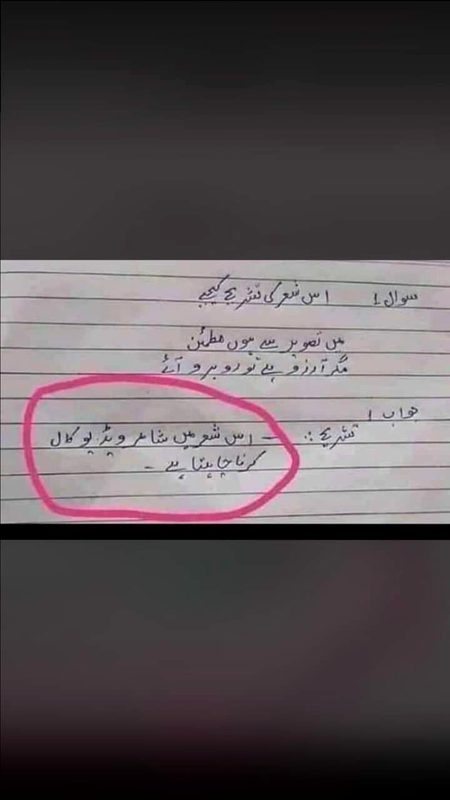 سوال 1 اس شعر کی تشریح کیجیے
میں تصویر سے ہوں مطمئن
مگر آرزو ہے تو روبرو آئے
جواب 1
تشریح :. - اس شعر میں شاعر ویڈیو کال
کرنا چاہتا ہے -